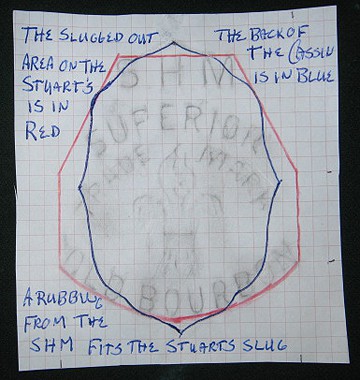 THE SLUGGED OUT
AREA ON THE
STUART'S
IS IN
RED
THE BACK OF
THE CASSIN
IS IN BLUE
SHM
SUPERIOR
TRADE MARK
OLD BOURBON
A RUBBING
FROM THE
SHM FITS THE STUARTS SLUG